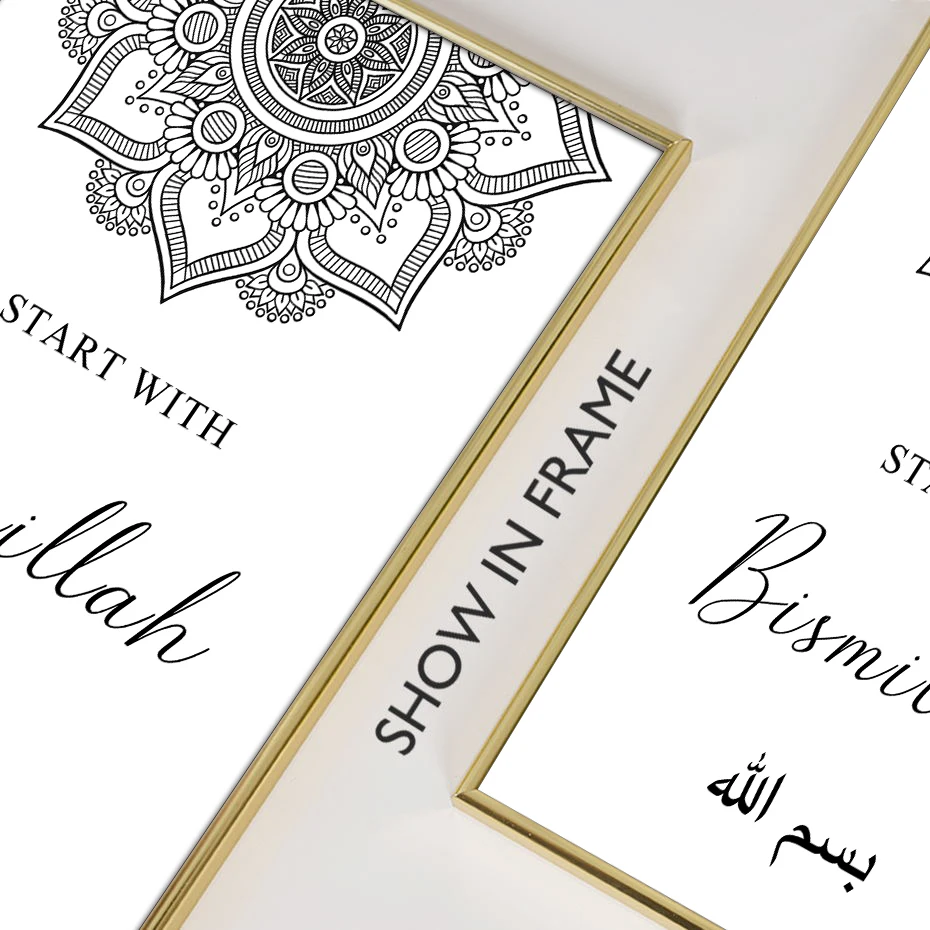 START WITH
illah
SHOW IN FRAME
STA
Bismi
بسم الله